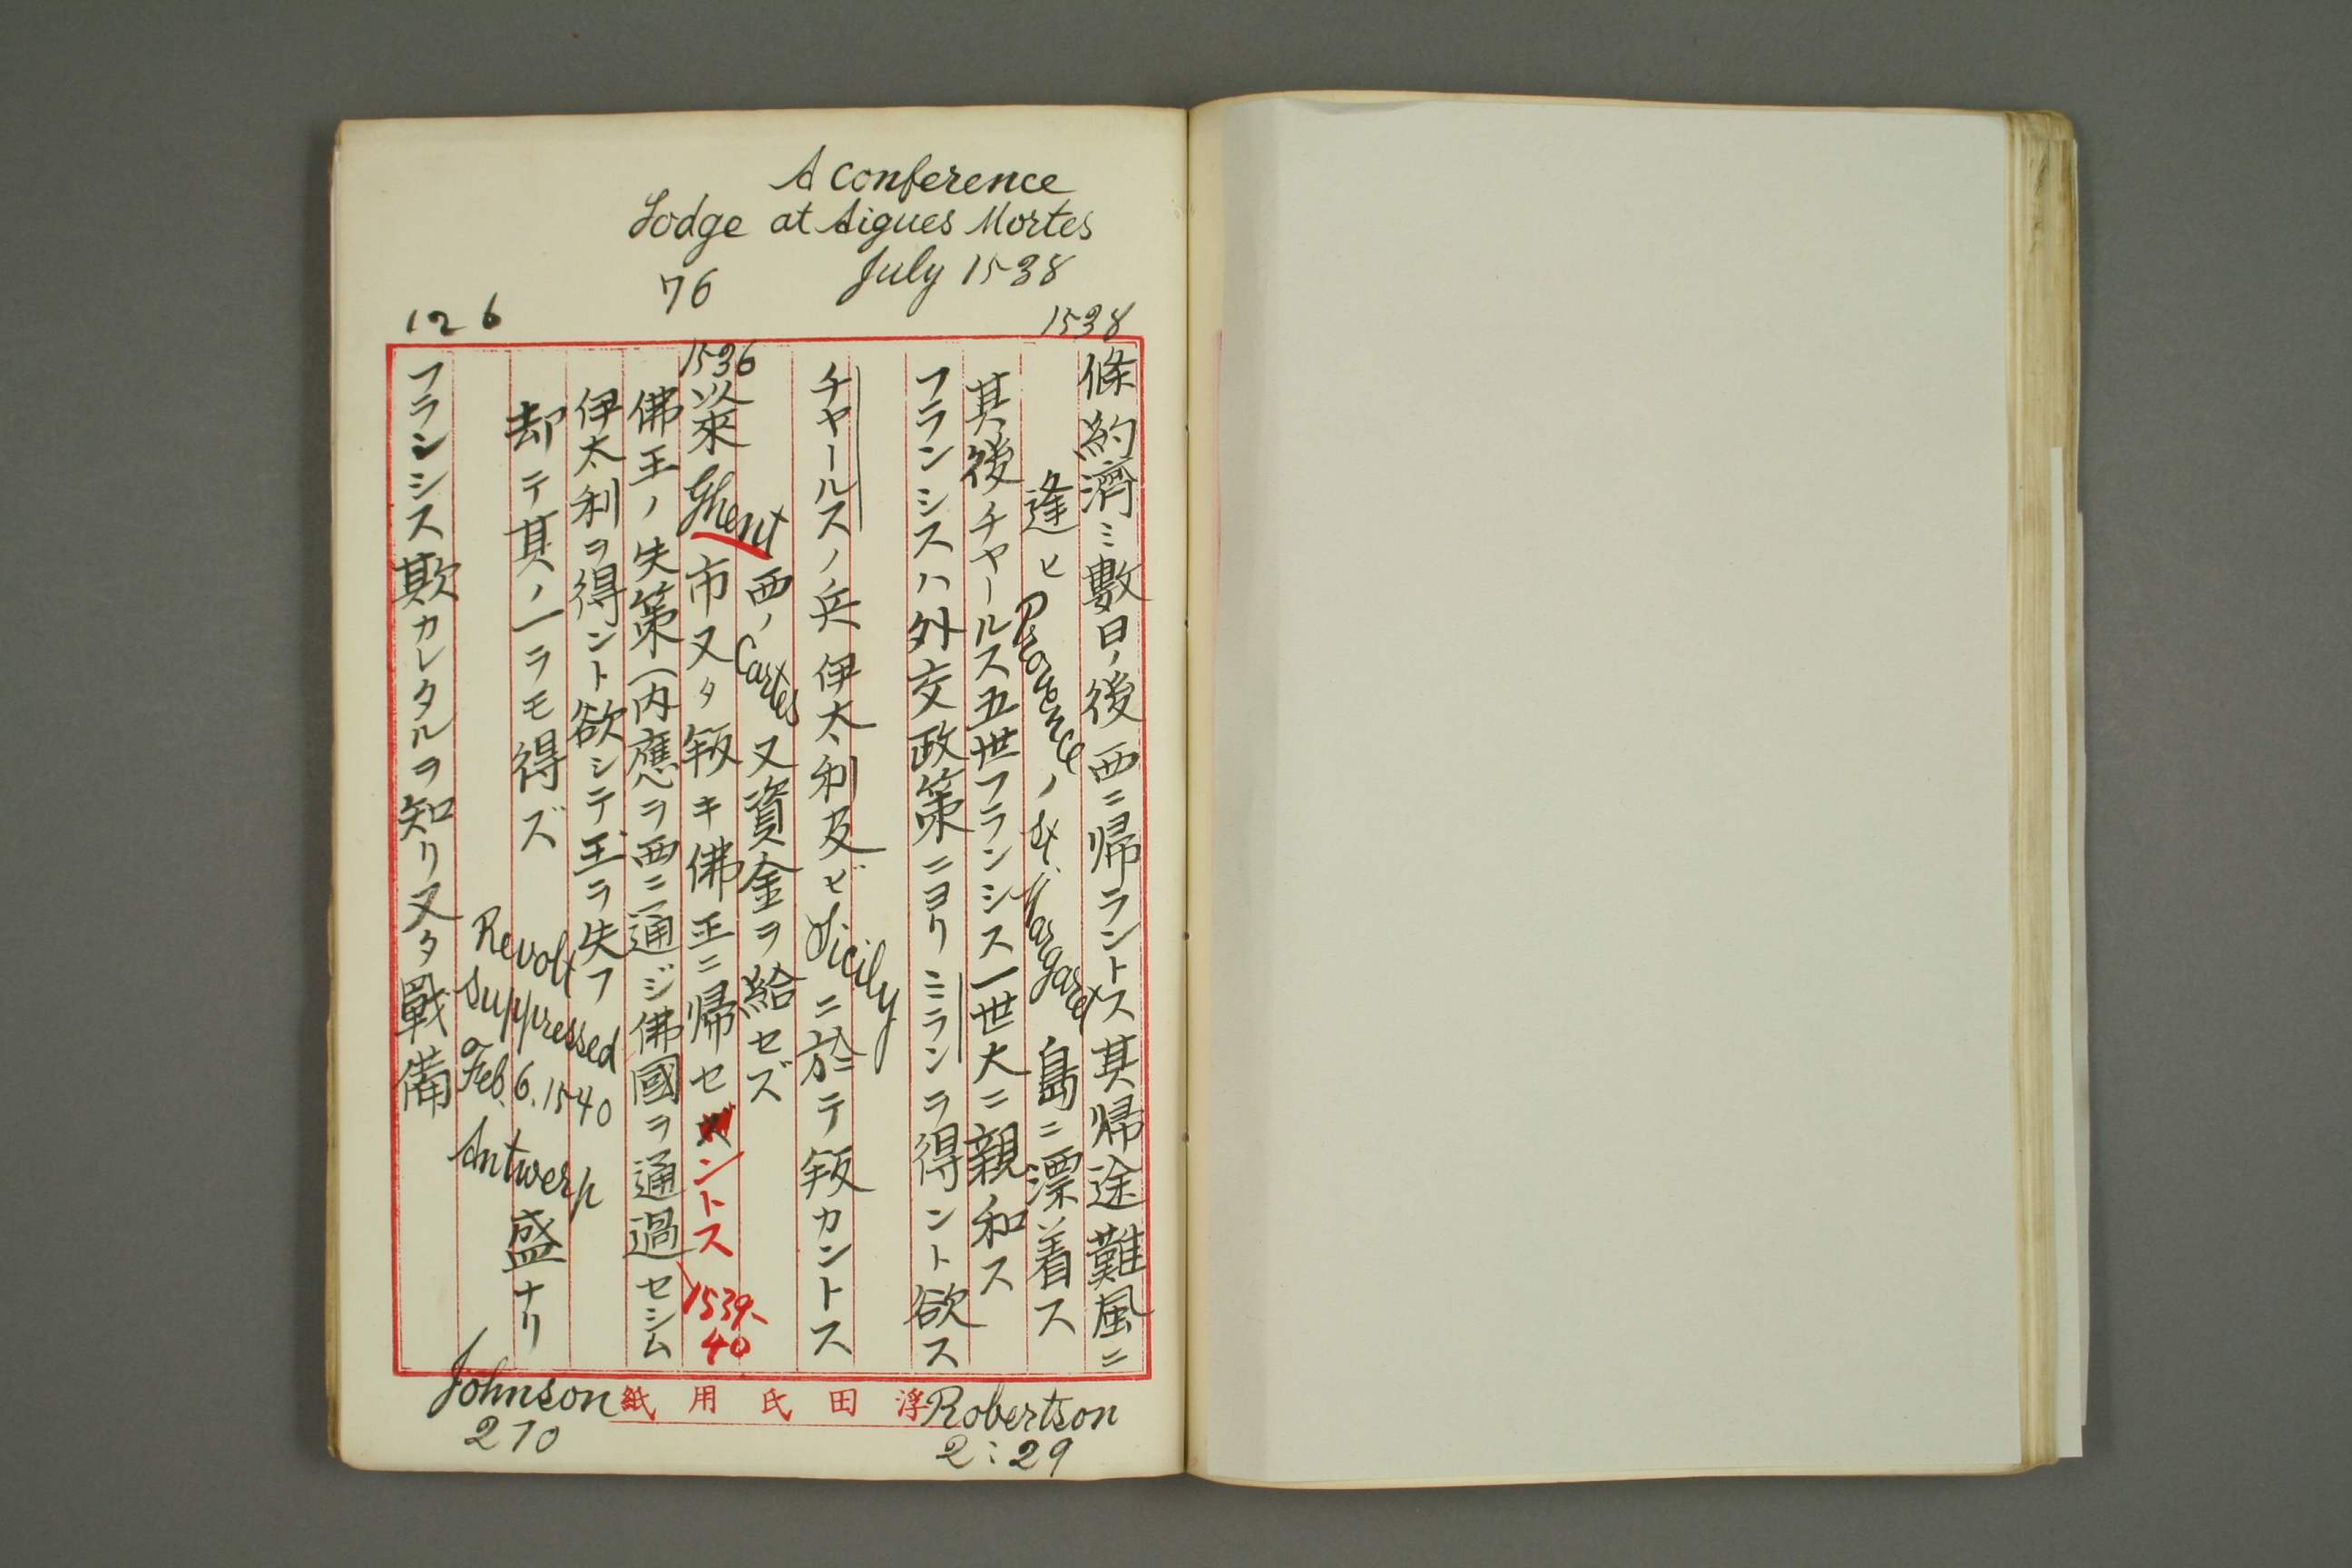 A Conference
Lodge at Aigues Mortes
76 July 1538
126
1538
條約濟ミ數日ノ後西ニ帰ラントス其帰途難風ニ
逢ヒ Provence ノ St. Margaret 島ニ漂着ス
其後チャールス五世フランシス一世大ニ親和ス
フランシスハ外交政策ニヨリミランヲ得ント欲ス
チャールスノ兵伊太利及ビ Sicily ニ於テ叛カントス
西ノ Cortes 又資金ヲ給セズ
1536
以來 Ghent 市又タ叛キ佛王ニ帰セントス 1539-40
佛王ノ失策(内應ヲ西ニ通ジ佛國ヲ通過セシム
伊太利ヲ得ント欲シテ王ヲ失フ
却テ其ノ一ヲモ得ズ
Revolt
suppressed
Feb. 6. 1540
Antwerp 盛ナリ
フランシス欺カレタルヲ知リ又タ戰備
Robertson
2:29
Johnson
270
浮田氏用紙